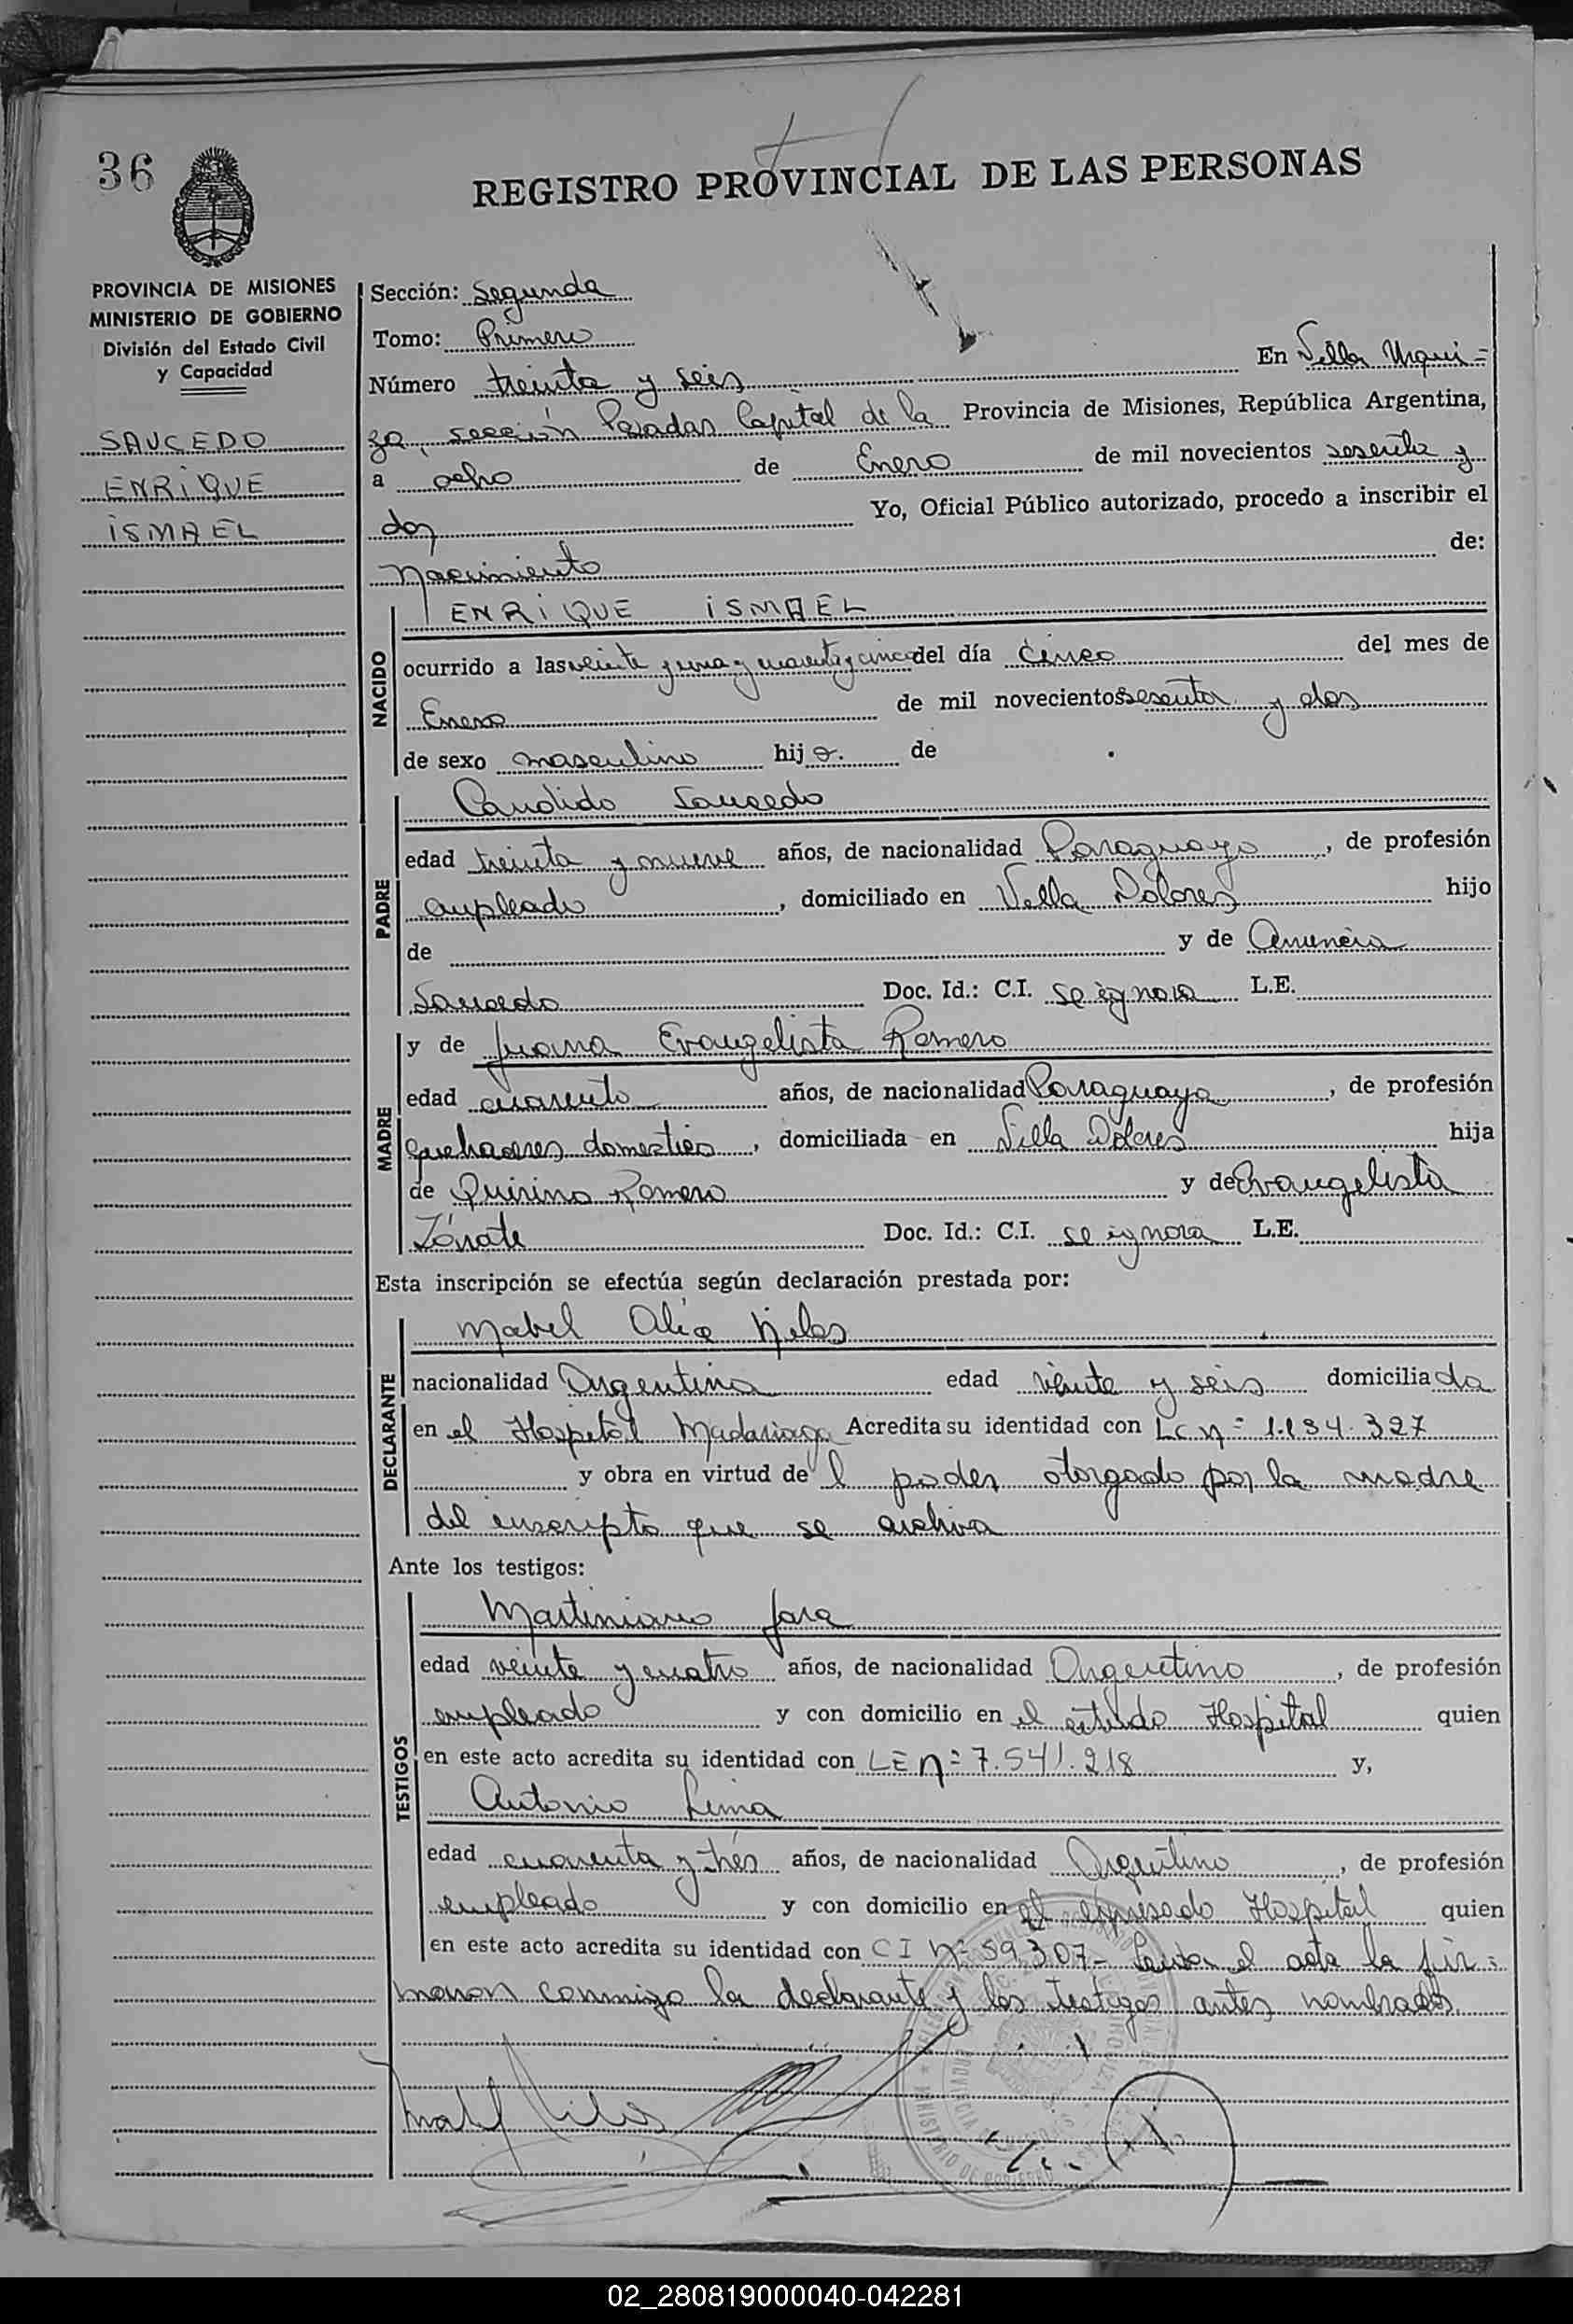 36
REGISTRO PROVINCIAL DE LAS PERSONAS
PROVINCIA DE MISIONES
MINISTERIO DE GOBIERNO
División del Estado Civil
y Capacidad
SAUCEDO
ENRIQUE
ISMAEL
Sección: Segunda
Tomo: Primero
Número treinta y seis En Villa Urqui=
za, sección Posadas Capital de la Provincia de Misiones, República Argentina,
a ocho de Enero de mil novecientos sesenta y
dos Yo, Oficial Público autorizado, procedo a inscribir el
Nacimiento de:
NACIDO
ENRIQUE ISMAEL
ocurrido a las veinte y una y cuarenta y cinco del día Cinco del mes de
Enero de mil novecientos sesenta y dos
de sexo masculino hijo. de
PADRE
Candido Saucedo
edad treinta y nueve años, de nacionalidad Paraguayo, de profesión
empleado, domiciliado en Villa Dolores hijo
de y de Anuncia
Saucedo Doc. Id.: C.I. se ignora L.E.
MADRE
y de Juana Evangelista Romero
edad cuarenta años, de nacionalidad Paraguaya, de profesión
quehaceres domestico, domiciliada en Villa Dolores hija
de Quirino Romero y de Evangelista
Zárate Doc. Id.: C.I. se ignora L.E.
Esta inscripción se efectúa según declaración prestada por:
DECLARANTE
Mabel Alice
nacionalidad Argentina edad veinte y seis domiciliada
en el Hospital Madariaga Acredita su identidad con LC Nº 1.134.327
y obra en virtud del poder otorgado por la madre
del inscripto que se archiva
Ante los testigos:
TESTIGOS
Martiniano Jara
edad veinte y cuatro años, de nacionalidad Argentino, de profesión
empleado y con domicilio en el citado Hospital quien
en este acto acredita su identidad con LE nº 7.541.218 y,
Antonio Lima
edad cuarenta y trés años, de nacionalidad Argentino, de profesión
empleado y con domicilio en el expresado Hospital quien
en este acto acredita su identidad con CI Nº 59.307- el acta la fir=
maron conmigo la declarante y los testigos antes nombrados.
02_280819000040-042281